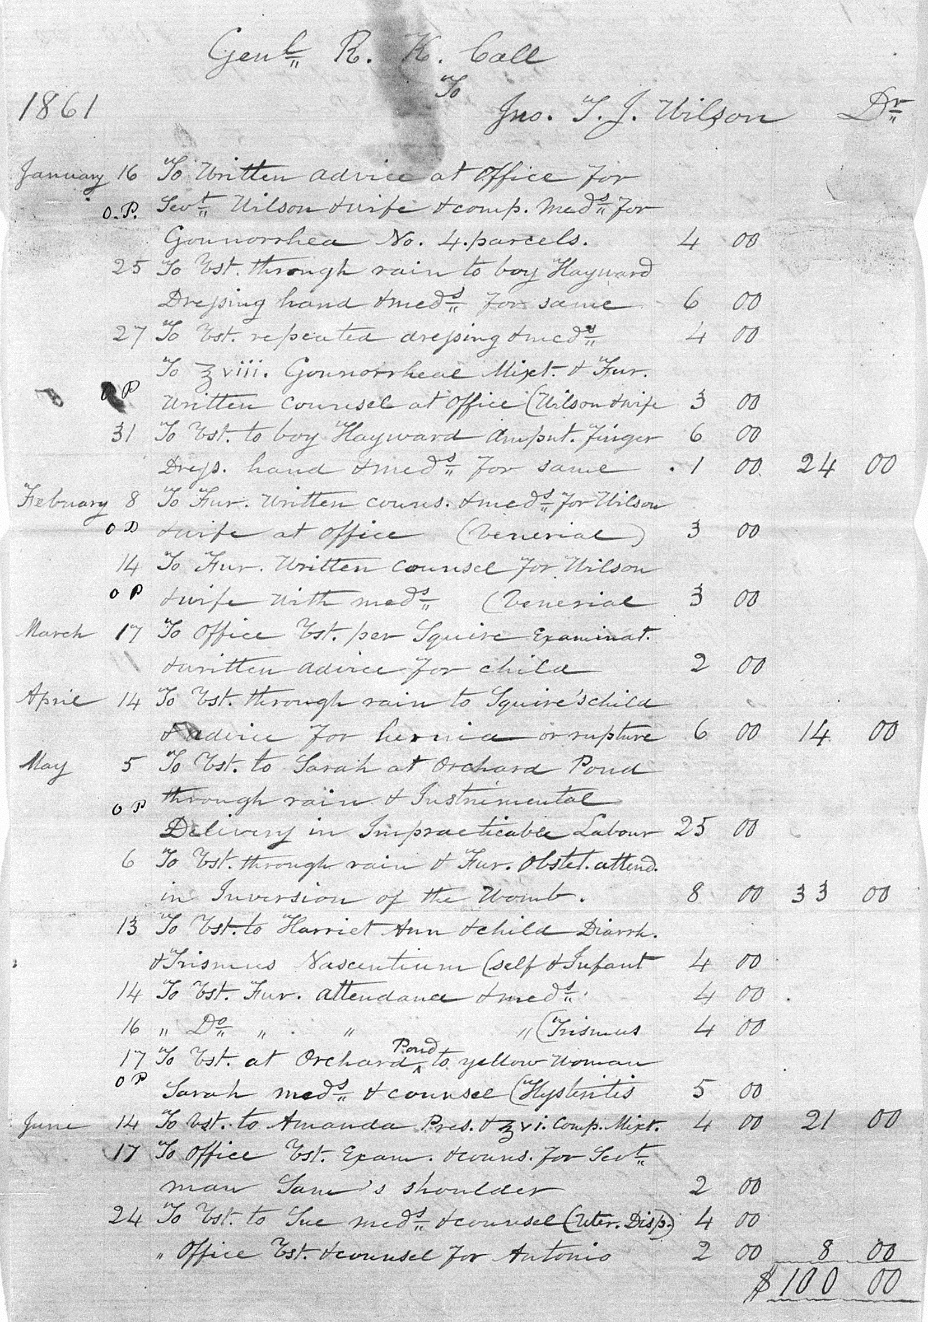 Genl. R. K. Call
To
1861 Jno. T. J. Wilson Dr.
January 16 To Written advice at Office for
O.P. Sevt. Wilson & wife & comp. Meds. for
Gonnorrhea No. 4. parcels. 4 00
25 To Vst. through rain to boy Hayward
Dressing hand & meds. for same 6 00
27 To Vst. repeated dressing & meds. 4 00
To ℥ viii. Gonnorrheal Mixt. & Fur.
O P Written counsel at Office (Wilson & wife 3 00
31 To Vst. to boy Hayward Amput. finger 6 00
Dress. hand & meds. for same 1 00 24 00
February 8 To Fur. Written couns. & meds. for Wilson
O P & wife at Office (Venerial) 3 00
14 To Fur. Written counsel for Wilson
O P & wife with meds. (Venerial 3 00
March 17 To Office Vst. per Squire Examinat.
& written advice for child 2 00
April 14 To Vst. through rain to Squire's child
& advice for hernia or rupture 6 00 14 00
May 5 To Vst. to Sarah at Orchard Pond
O P through rain & Instrimental
Delivery in Impracticable Labour 25 00
6 To Vst. through rain & Fur. Obstet. attend.
in Inversion of the Womb. 8 00 33 00
13 To Vst. to Harriet Ann & child Diarrh.
& Trismus Nascentium (self & Infant 4 00
14 To Vst. Fur. attendance & meds. 4 00
16 " Do. " " " (Trismus 4 00
17 To Vst. at Orchard Pond to yellow Woman
O P Sarah meds. & counsel (Hysteritis 5 00
June 14 To Vst. to Amanda Pres. & ℥ vi. Comp. Mixt. 4 00 21 00
17 To Office Vst. Exam. & couns. for Sevt.
man Sam's shoulder 2 00
24 To Vst. to Sue meds. & counsel (Uter. Disp.) 4 00
" Office Vst. & counsel for Antonio 2 00 8 00
$ 100 00